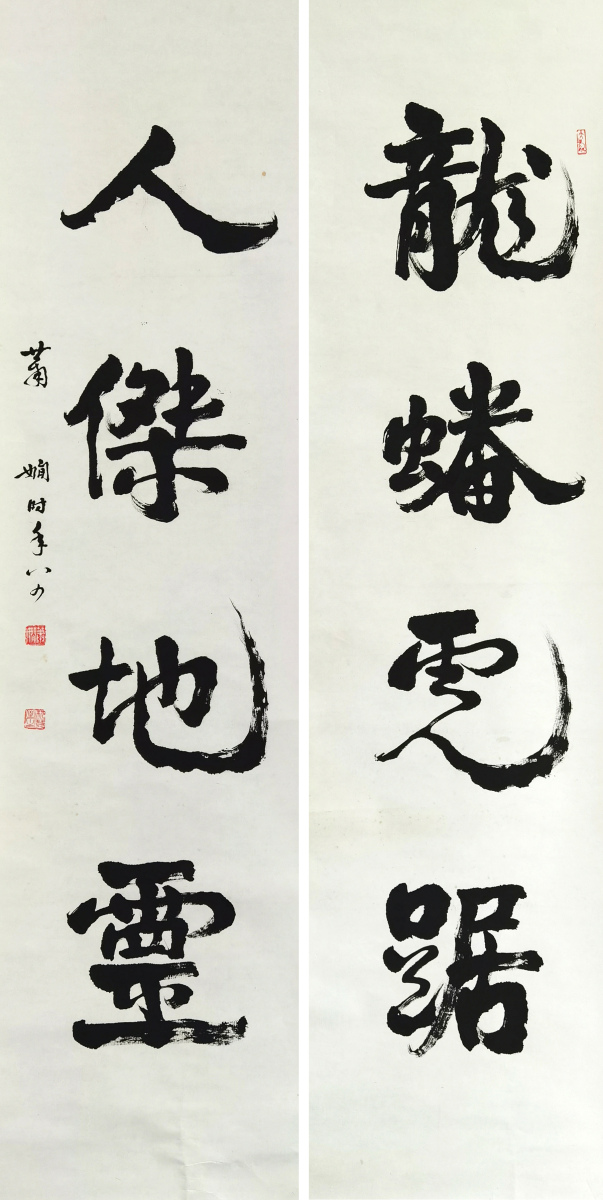 龍蟠虎踞
人傑地靈
蕭嫻時年八四